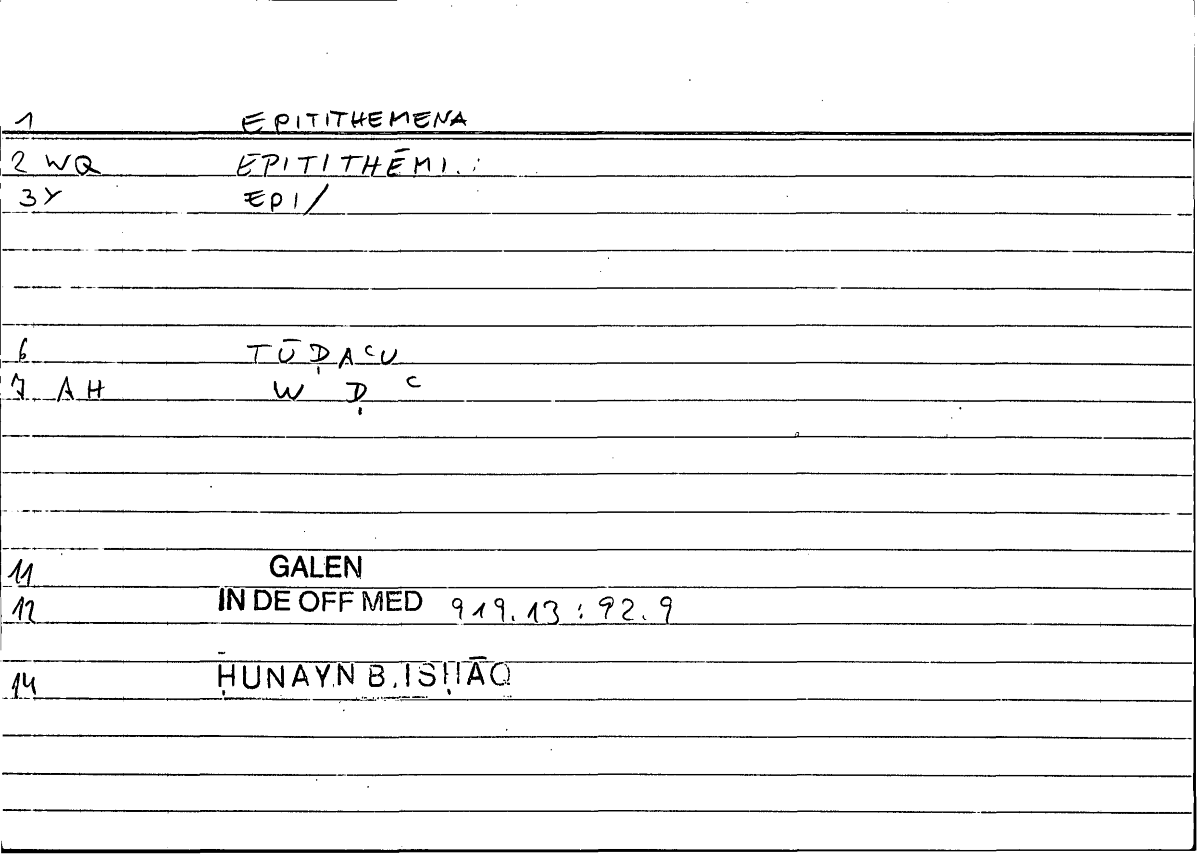 1 EPITITHEMENA
2 WQ EPITITHĒMI.:
3Y EPI/
6 TŪḌAʿU
7 AH W Ḍ ʿ
11 GALEN
12 IN DE OFF MED 919.13 : 92.9
14 ḤUNAYN B. ISḤĀQ